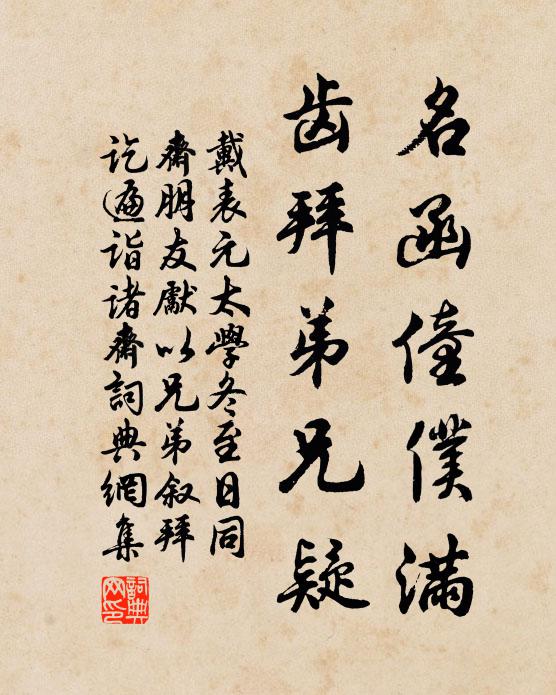 名函僮僕满
齿拜弟兄疑
戴表元太學冬至日同
齋朋友獻以兄弟叙拜
讫遍诣诸齋詞典網集
詞典網印